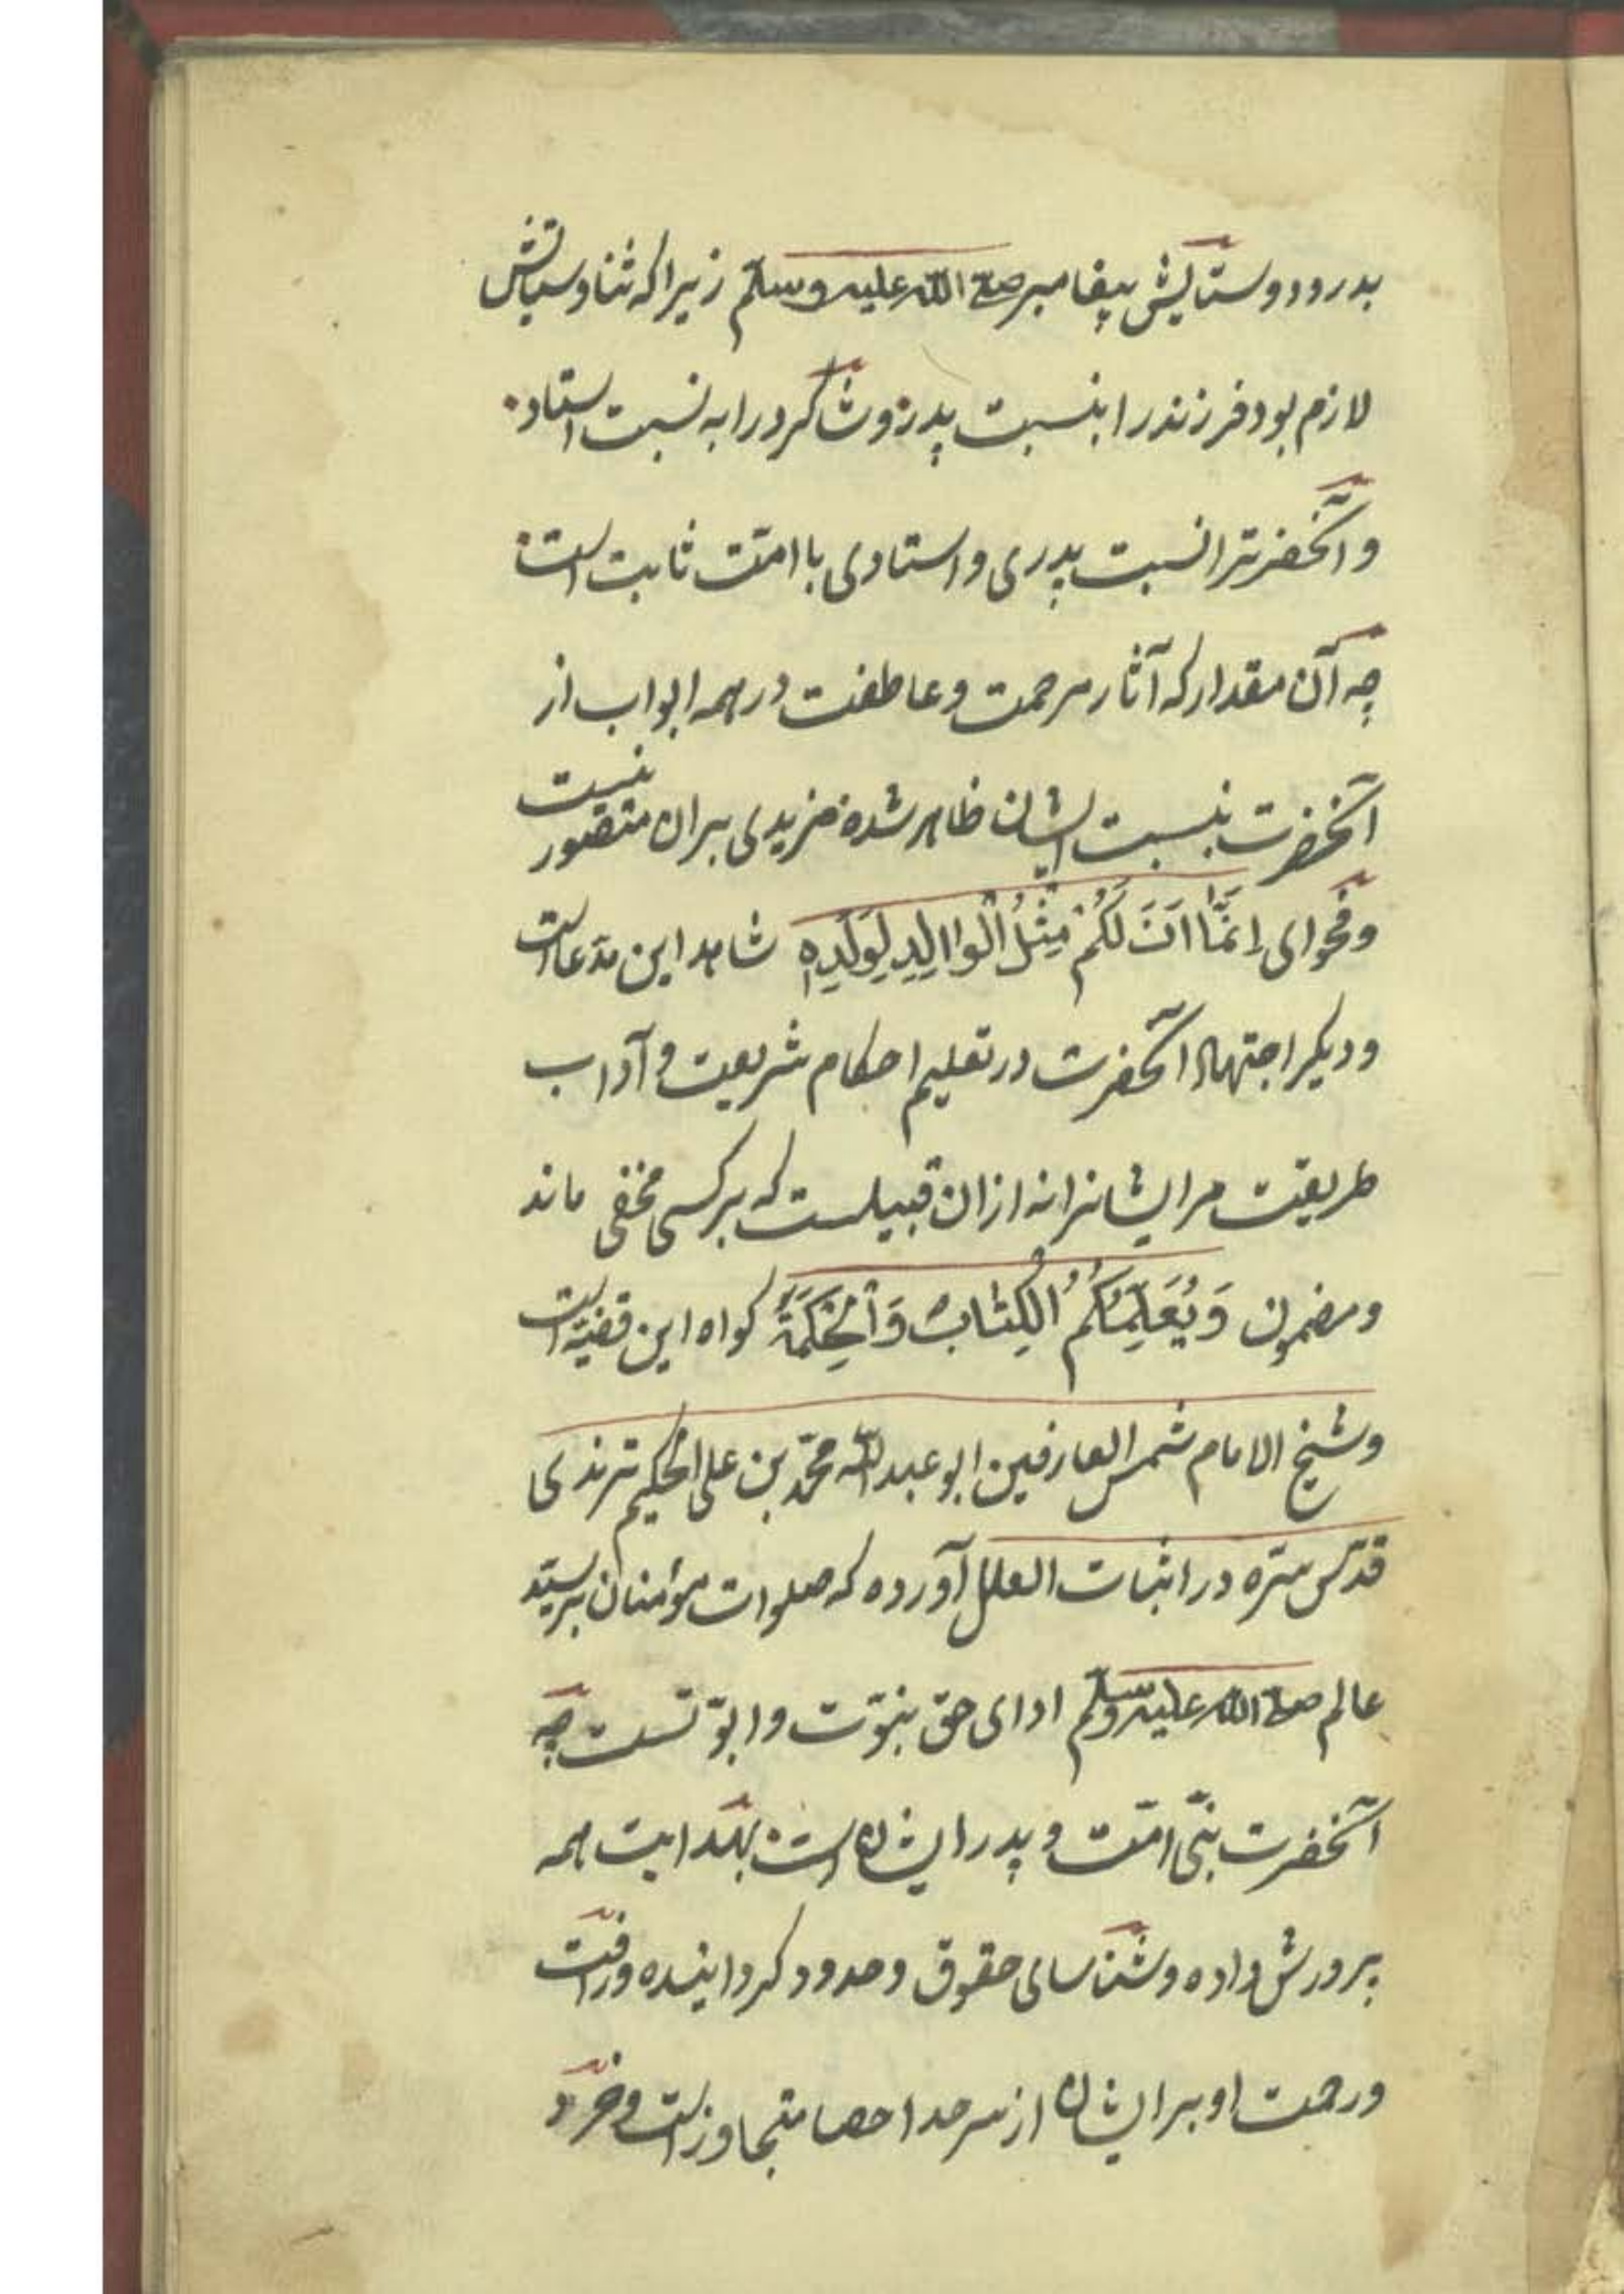 بدرود و ستایش پیغامبر صلی الله علیه وسلم زیرا که ثنا و ستایش
لازم بود فرزندرا بنسبت پدر و شاکردرا به نسبت استاد
و آنحضرترا نسبت پدری و استادی با امّت ثابت است
چه آن مقدار که آثار مرحمت و عاطفت در همه ابواب از
آنحضرت بنسبت ایشان ظاهر شده مزیدی بر ان متصور نیست
و فحوای اِنَّمَّا اَنَا لَکُمْ مِثْلُ الْوَاالِدِ لِوَلَدِهِ شاهد این مدّعاست
و دیکر اجتهاد آنحضرت در تعلیم احکام شریعت و آداب
طریقت مر ایشانرا نه از ان قبیلست که بر کسی مخفی ماند
و مضمون وَیُعَلِّمُکُمُ الْکِتَابَ وَالْحِکْمَةَ کواه این قضیّه است
و شیخ الامام شمس العارفین ابو عبدالله محمّد بن علی الحکیم ترمذی
قدّس سرّه در اثبات العلل آورده که صلوات مؤمنان بر سیّد
عالم صلی الله علیه وسلم ادای حق نبوّت و ابوّتست چه
آنحضرت نبیّ امّت و پدر ایشان است بهدایت همه
پرورش داده و شناسای حقوق و حدود کردانیده و رافت
و رحمت او بر ایشان از سرحد احصا متجاوز است و خرد